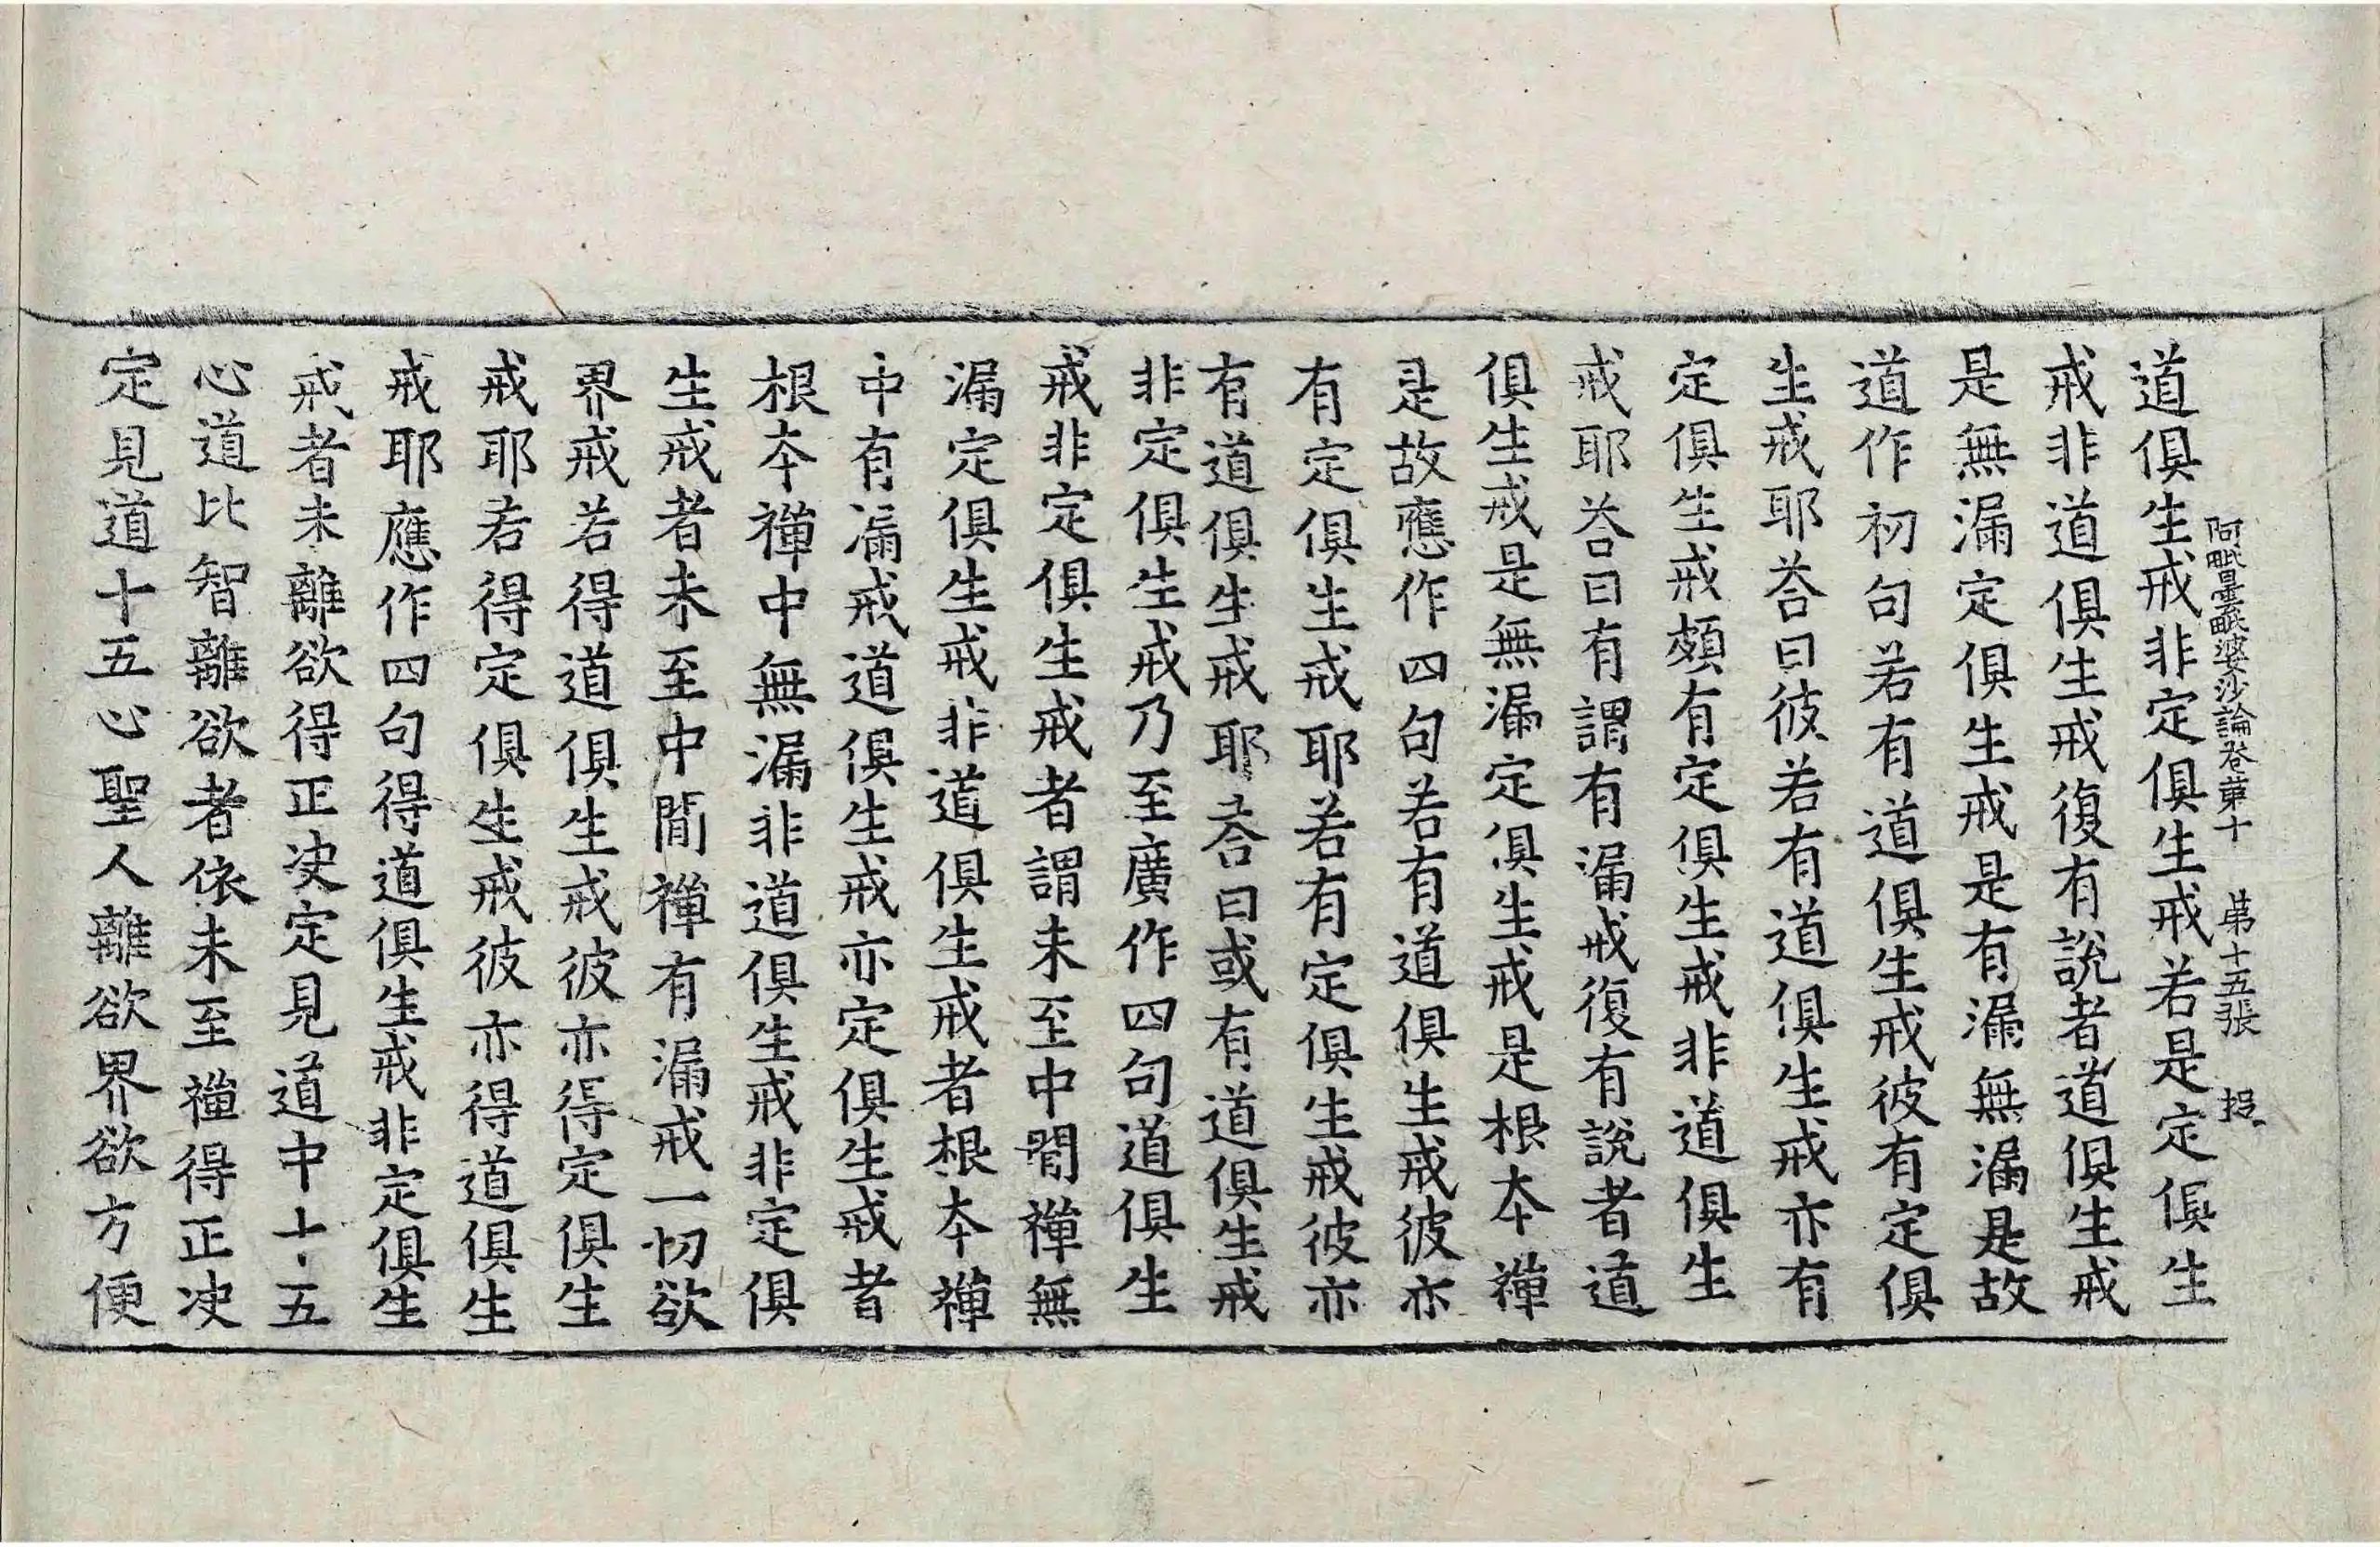 阿毗曇毗婆沙論卷第十　第十五張
道俱生戒非定俱生戒若是定俱生
戒非道俱生戒復有說者道俱生戒
是無漏定俱生戒是有漏無漏是故
道作初句若有道俱生戒彼有定俱
生戒耶荅曰彼若有道俱生戒亦有
定俱生戒頗有定俱生戒非道俱生
戒耶荅曰有謂有漏戒復有說者道
俱生戒是無漏定俱生戒是根本禪
是故應作四句若有道俱生戒彼亦
有定俱生戒耶若有定俱生戒彼亦
有道俱生戒耶荅曰或有道俱生戒
非定俱生戒乃至廣作四句道俱生
戒非定俱生戒者謂未至中間禪無
漏定俱生戒非道俱生戒者根本禪
中有漏戒道俱生戒亦定俱生戒者
根本禪中無漏非道俱生戒非定俱
生戒者未至中間禪有漏戒一切欲
界戒若得道俱生戒彼亦得定俱生
戒耶若得定俱生戒彼亦得道俱生
戒耶應作四句得道俱生戒非定俱生
戒者未離欲得正决定見道中十五
心道比智離欲者依未至禪得正决
定見道十五心聖人離欲界欲方便